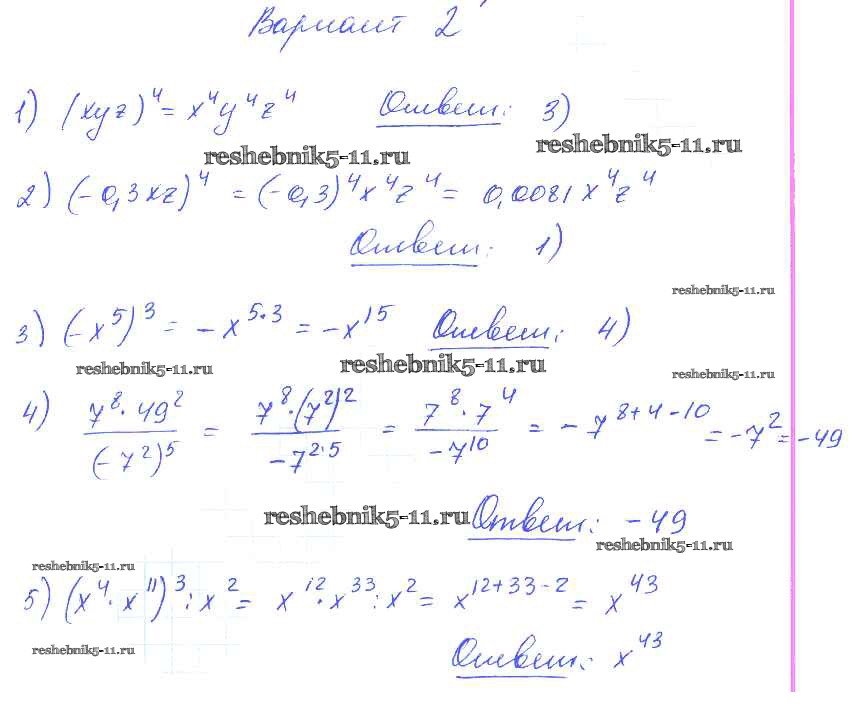 Вариант 2
1) (xyz)^4 = x^4 y^4 z^4 Ответ: 3)
reshebnik5-11.ru reshebnik5-11.ru
2) (-0,3xz)^4 = (-0,3)^4 x^4 z^4 = 0,0081 x^4 z^4
Ответ: 1)
reshebnik5-11.ru
3) (-x^5)^3 = -x^{5·3} = -x^{15} Ответ: 4)
reshebnik5-11.ru reshebnik5-11.ru reshebnik5-11.ru
4) \frac{7^8 · 49^2}{(-7^2)^5} = \frac{7^8 · (7^2)^2}{-7^{2·5}} = \frac{7^8 · 7^4}{-7^{10}} = -7^{8+4-10} = -7^2 = -49
reshebnik5-11.ru Ответ: -49
reshebnik5-11.ru
reshebnik5-11.ru
5) (x^4 · x^{11})^3 : x^2 = x^{12} · x^{33} : x^2 = x^{12+33-2} = x^{43}
reshebnik5-11.ru Ответ: x^{43}